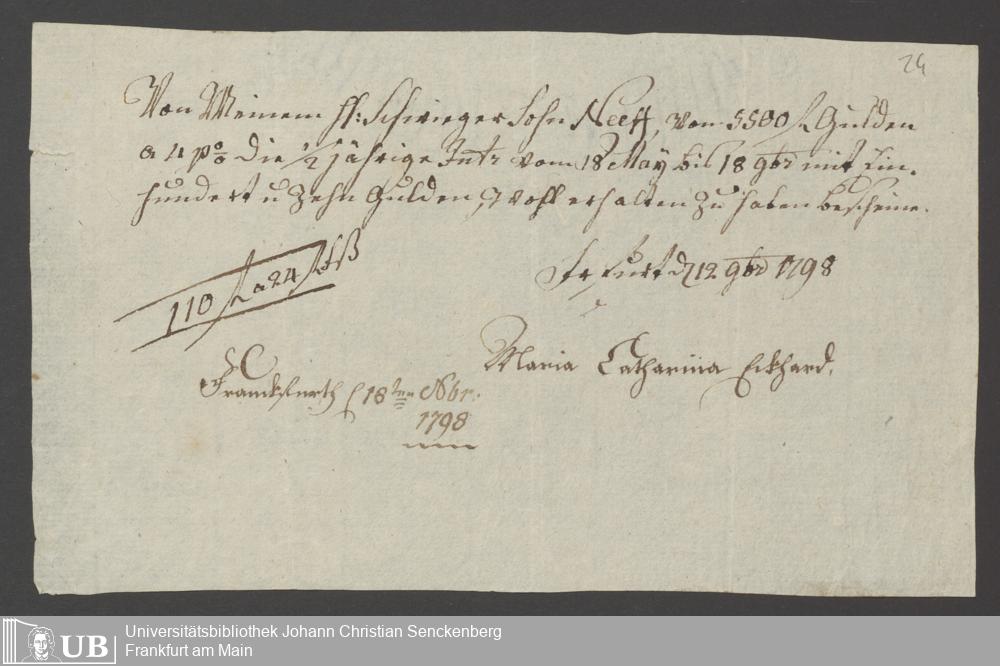 24
Von Meinem H: Schwieger Sohn Neeff, von 5500 f Gulden
a 4 p% die 1/2 jährige Intr: vom 18 May bis 18 9br mit Ein-
hundert u Zehn Gulden, Wohl erhalten zu haben bescheine.
110 f a 24
Frfurt d 12 9br 1798
Maria Catharina Eckhard.
Franckfurth 18ten Nbr:
1798
Universitätsbibliothek Johann Christian Senckenberg
Frankfurt am Main
UB